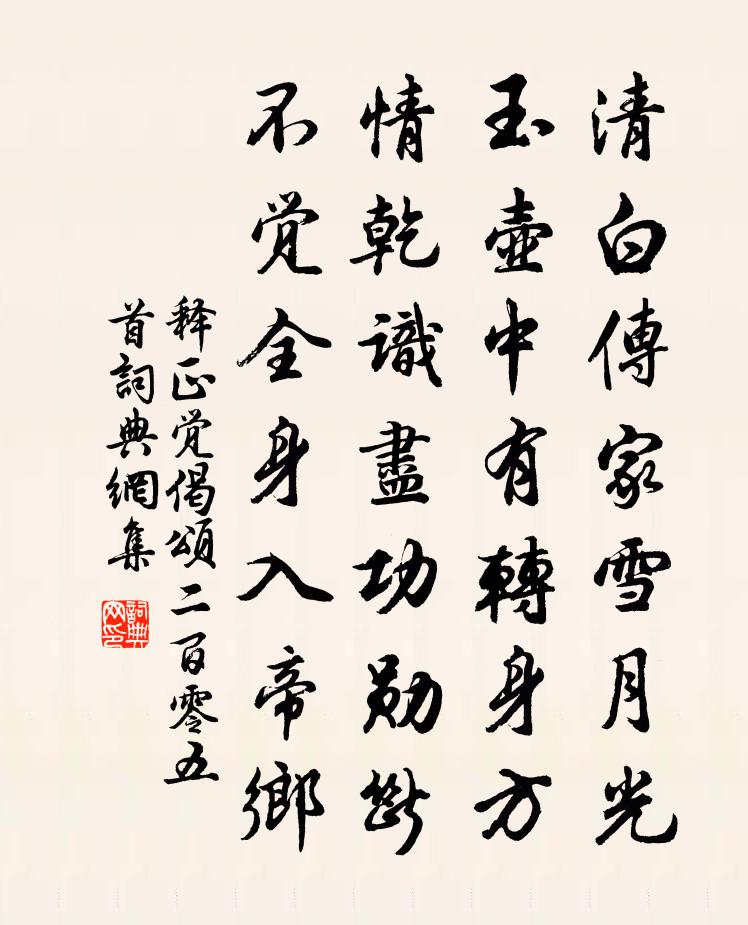 清白傳家雪月光
玉壺中有轉身方
情乾識盡功勋斷
不覚全身入帝鄉
释正覚偈頌二百零五
首詞典網集
詞典网印